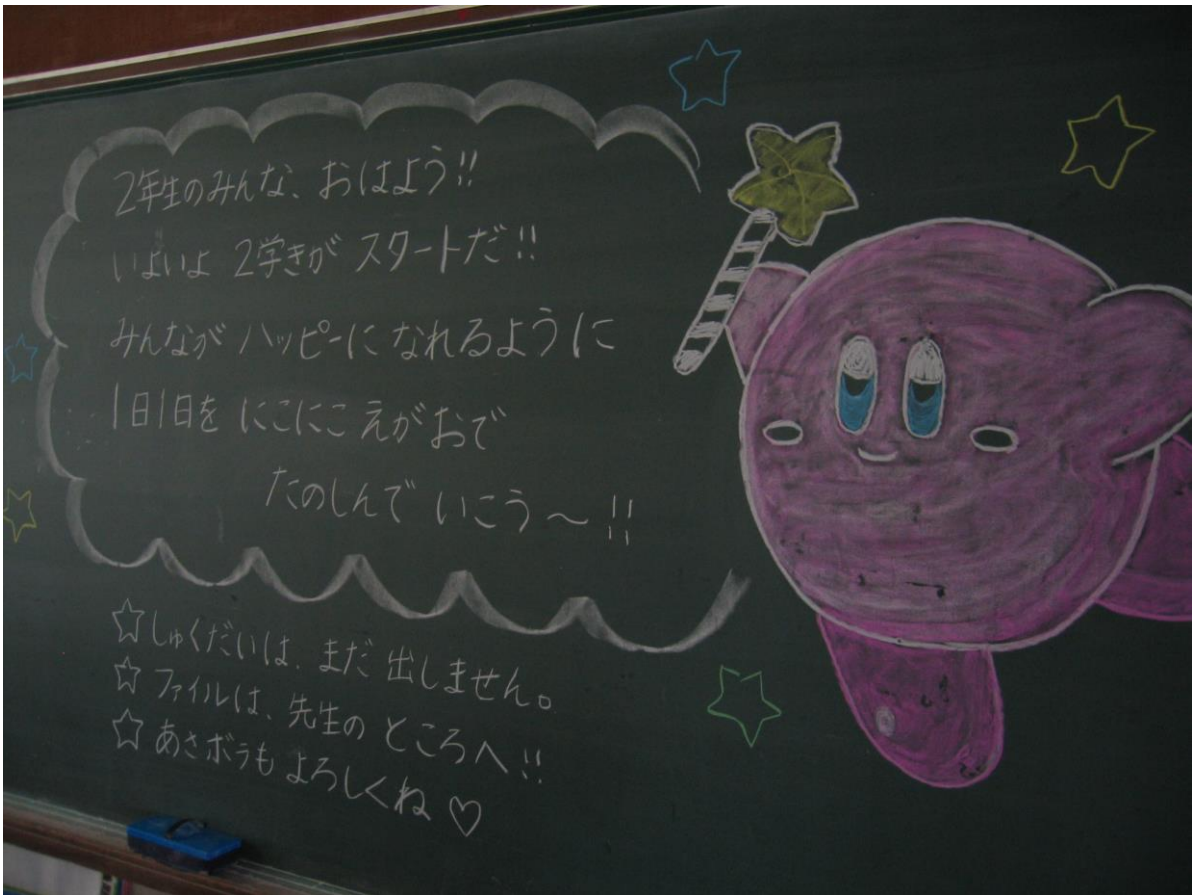 2年生のみんな、おはよう!!
いよいよ 2学きが スタートだ!!
みんなが ハッピーに なれるように
1日1日を にこにこ えがおで
たのしんで いこう〜!!
☆しゅくだいは、まだ 出しません。
☆ファイルは、先生の ところへ!!
☆あさボラも よろしくね♡